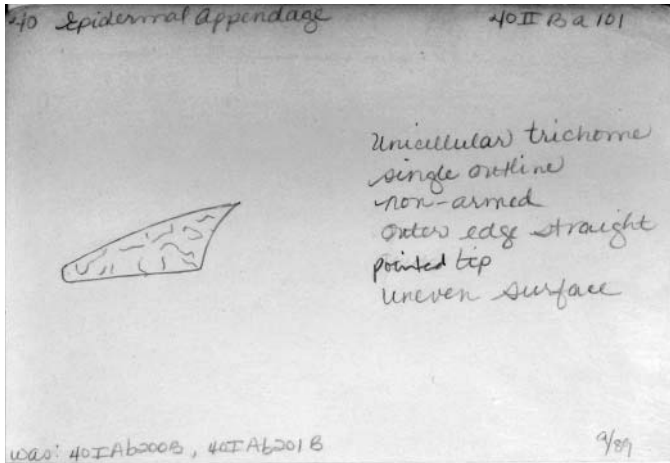 40 Epidermal Appendage
40 II B a 101
Unicellular trichome
single outline
non-armed
outer edge straight
pointed tip
uneven surface
was: 40IAb200B, 40IAb201B
9/89